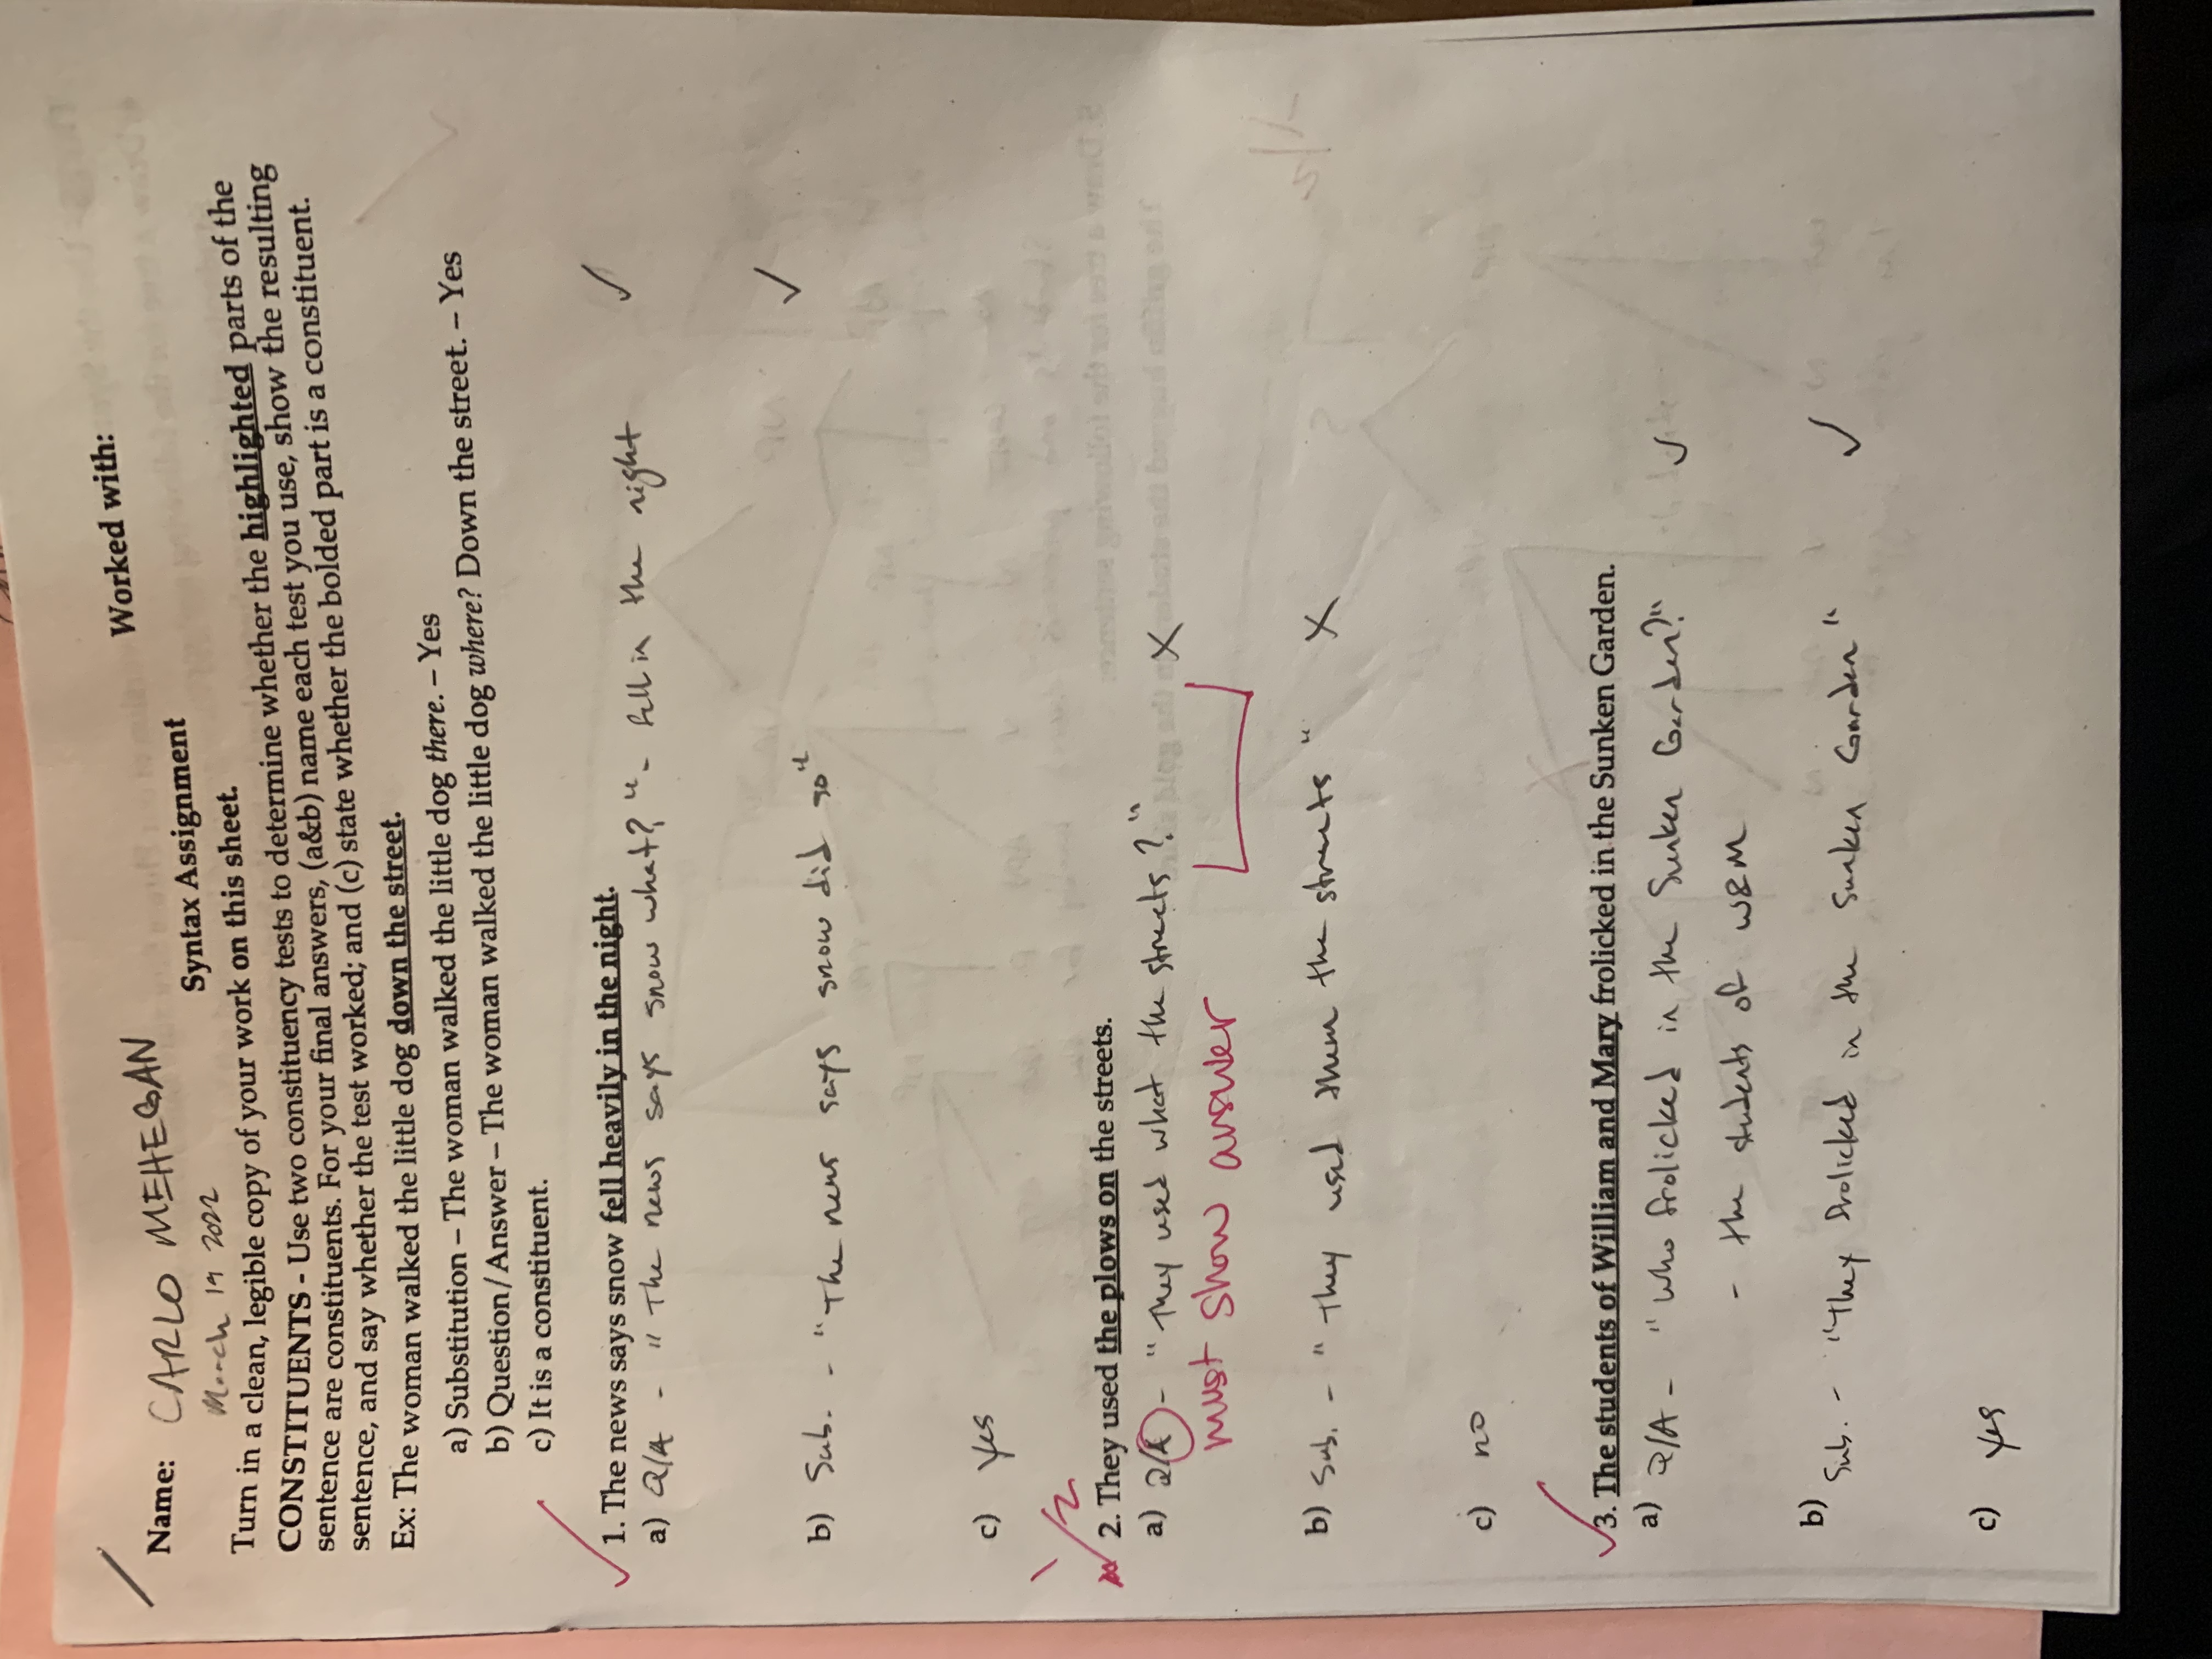 Worked with:
Name: CARLO MEHEGAN
March 19 2022
Syntax Assignment
Turn in a clean, legible copy of your work on this sheet.
CONSTITUENTS - Use two constituency tests to determine whether the highlighted parts of the
sentence are constituents. For your final answers, (a&b) name each test you use, show the resulting
sentence, and say whether the test worked; and (c) state whether the bolded part is a constituent.
Ex: The woman walked the little dog down the street.
a) Substitution – The woman walked the little dog there. – Yes
b) Question/Answer – The woman walked the little dog where? Down the street. – Yes
c) It is a constituent.
✓ 1. The news says snow fell heavily in the night.
a) Q/A - "The news says snow what?" - fell in the night ✓
b) Sub. - "The news says snow did so" ✓
c) yes
1/2
2. They used the plows on the streets.
a) Q/A - "They used what the streets?" X
must show answer
b) Sub. - "They used them the streets" X
c) no
✓ 3. The students of William and Mary frolicked in the Sunken Garden.
a) Q/A - "Who frolicked in the Sunken Garden?" ✓
- the students of W&M
b) Sub. - "They frolicked in the Sunken Garden" ✓
c) yes